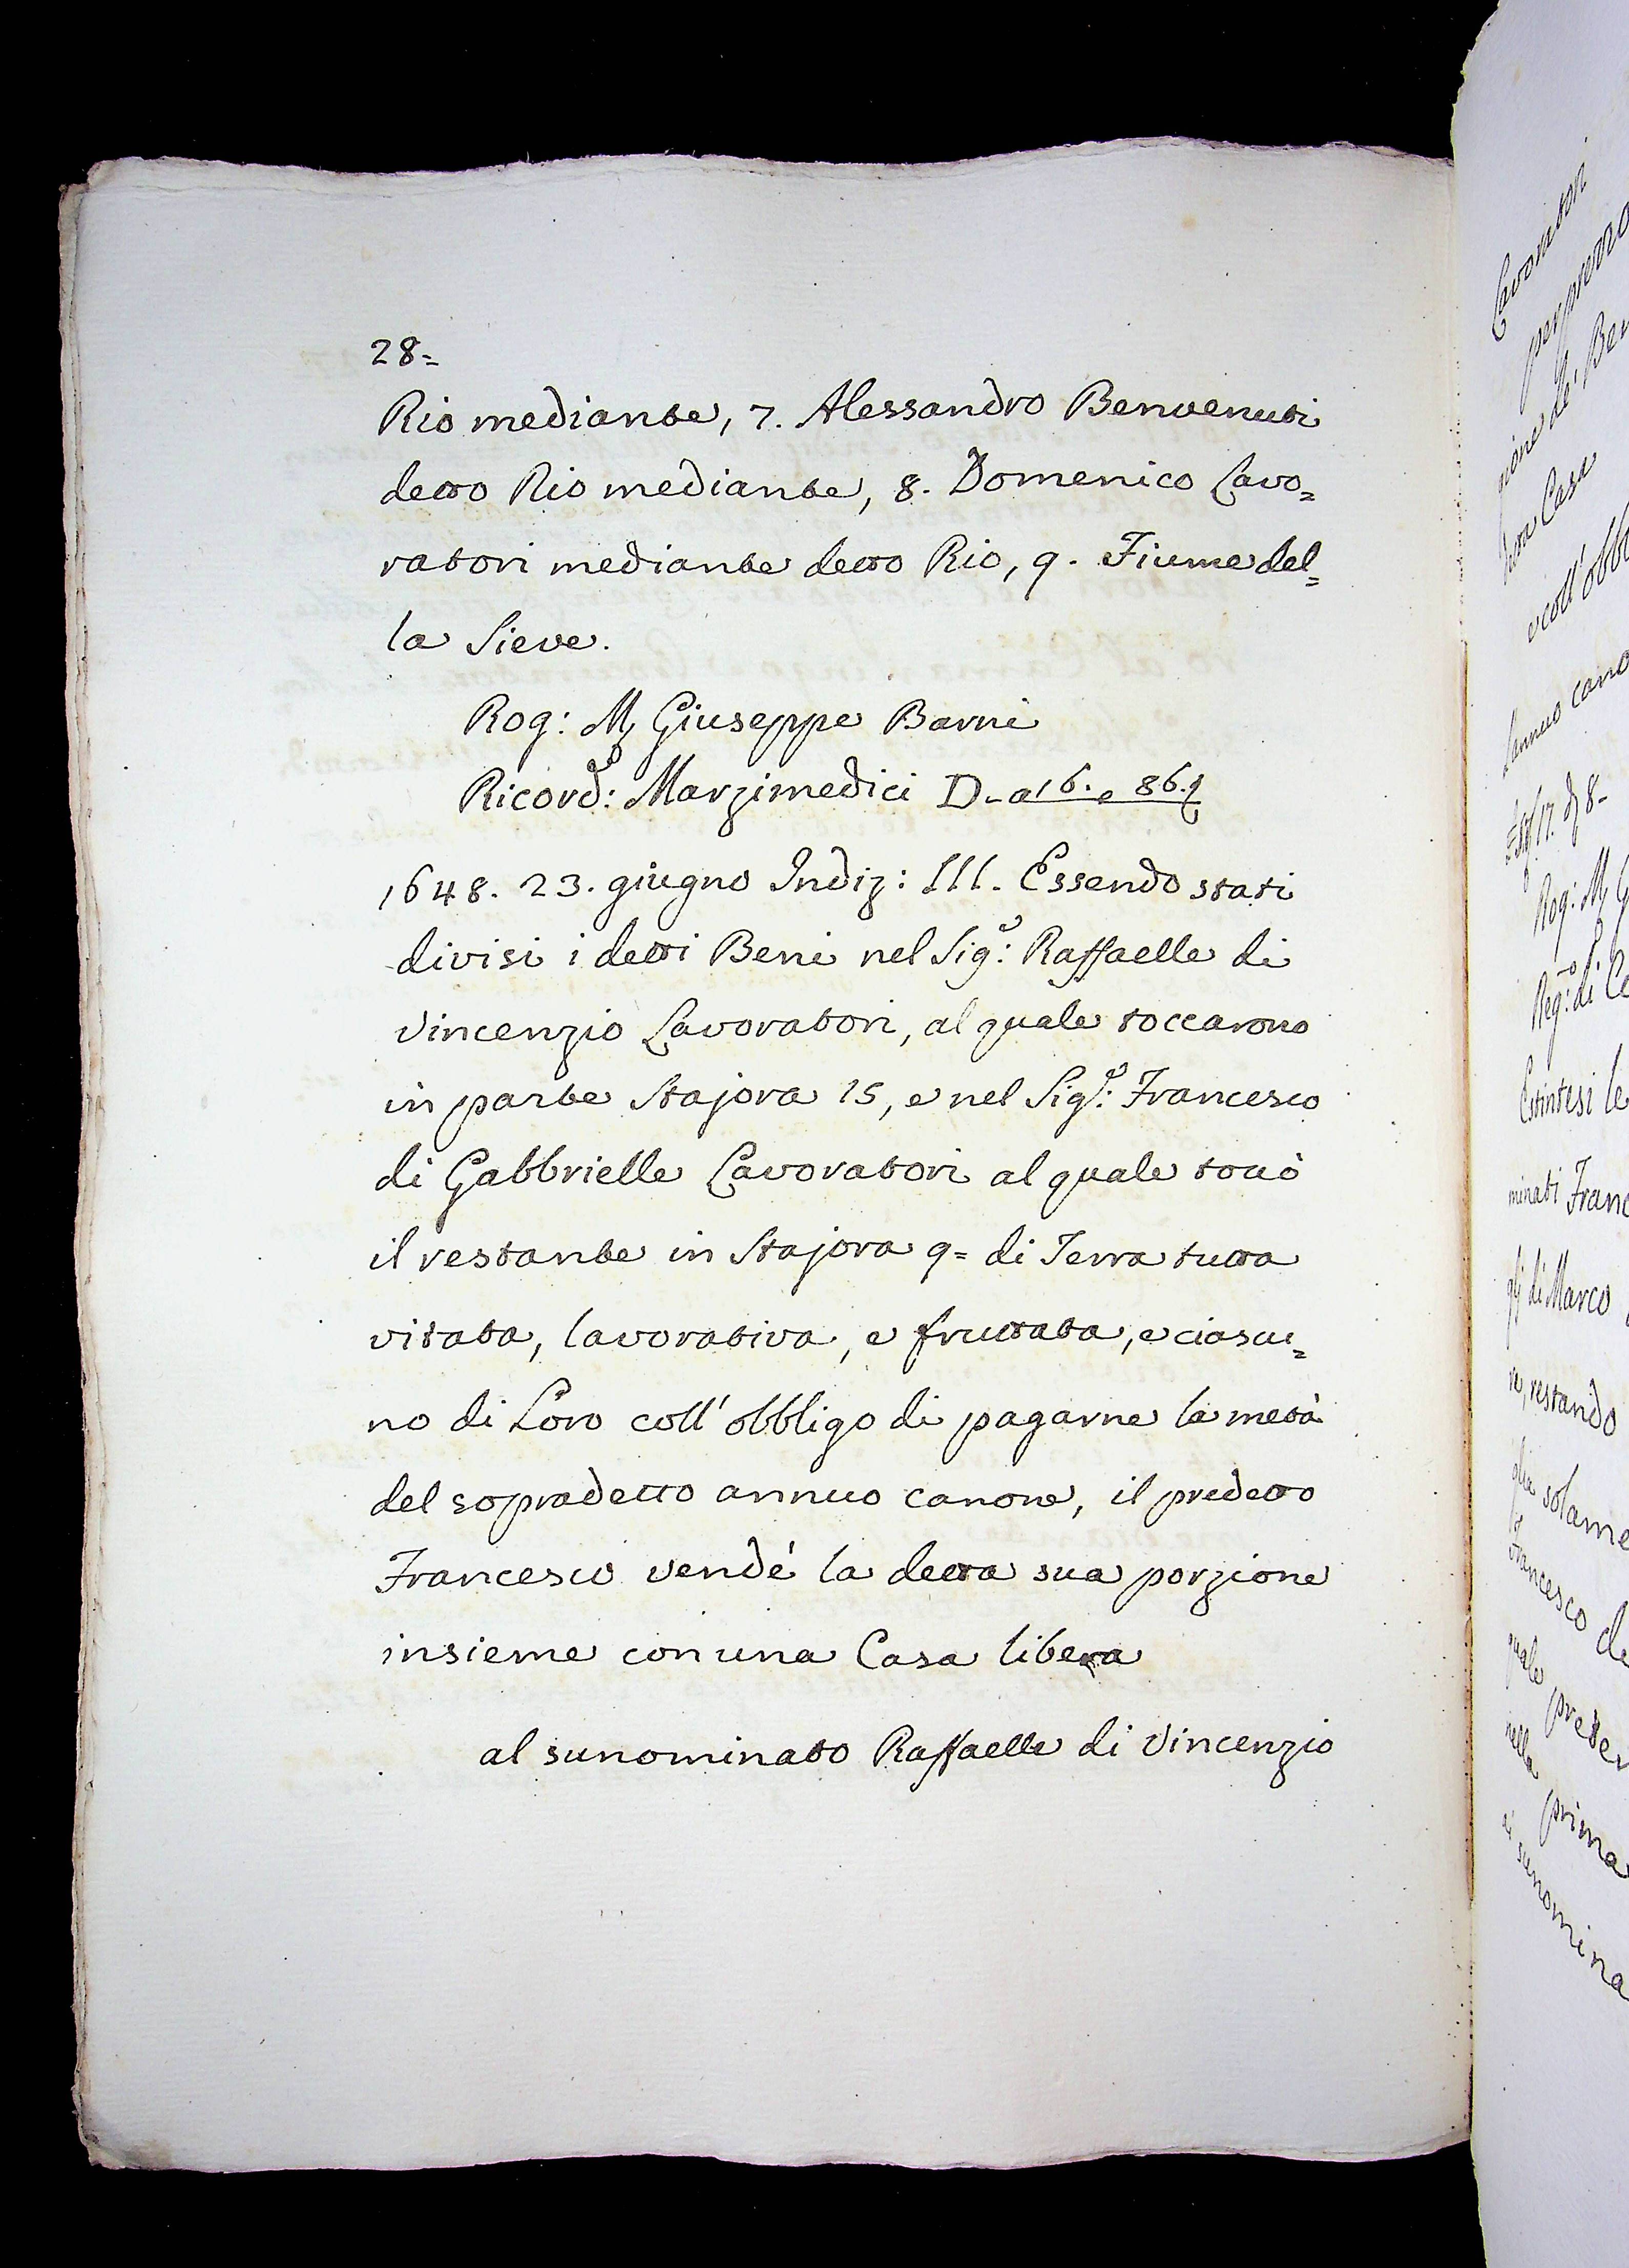 28=
Rio mediante, 7. Alessandro Benvenuti
detto Rio mediante, 8. Domenico Lavo=
ratori mediante detto Rio, 9. Fiume del=
la Sieve.
Rog: M Giuseppe Barni
Ricord: Marzimedici D-a 16. e 86.
1648. 23. giugno Indiz: III. Essendo stati
divisi i detti Beni nel Sig.e: Raffaelle di
Vincenzio Lavoratori, al quale toccarono
in parte Stajora 15, e nel Sig.e: Francesco
di Gabbrielle Lavoratori al quale toccò
il restante in Stajora 9= di Terra tutta
vitata, lavorativa, e fruttata, e ciascu=
no di Loro coll'obbligo di pagarne la metà
del sopradetto annuo canone, il predetto
Francesco vendé la detta sua porzione
insieme con una Casa libera
al sunominato Raffaelle di Vincenzio
Lavoratori
coll'obbl
annuo cano
Rog: M
Estintesi le
minati Franc
gli di Marco
re, restando
glia solame
Francesco de
quale preser
nella prima
sunomina